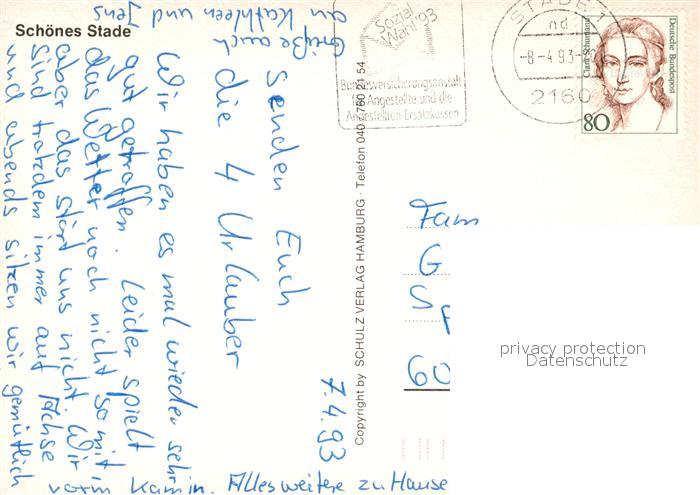 Schönes Stade
7.4.93
Wir haben es mal wieder sehr
gut getroffen. Leider spielt
das Wetter noch nicht so mit,
aber das stört uns nicht. Wir
sind trotzdem immer auf Achse
und abends sitzen wir gemütlich
vorm Kamin. Alles weitere zu Hause
senden Euch
die 4 Urlauber
Grüße auch
an Kathleen und Jens
Copyright by SCHULZ VERLAG HAMBURG · Telefon 040
54
Sozial
Wahl '93
Bundesversicherungsanstalt
für Angestellte und die
Angestellten-Ersatzkassen
STADE 1
nd
-8-4.93-
2160
Clara Schumann
Deutsche Bundespost
80
Fam
G
60
privacy protection
Datenschutz